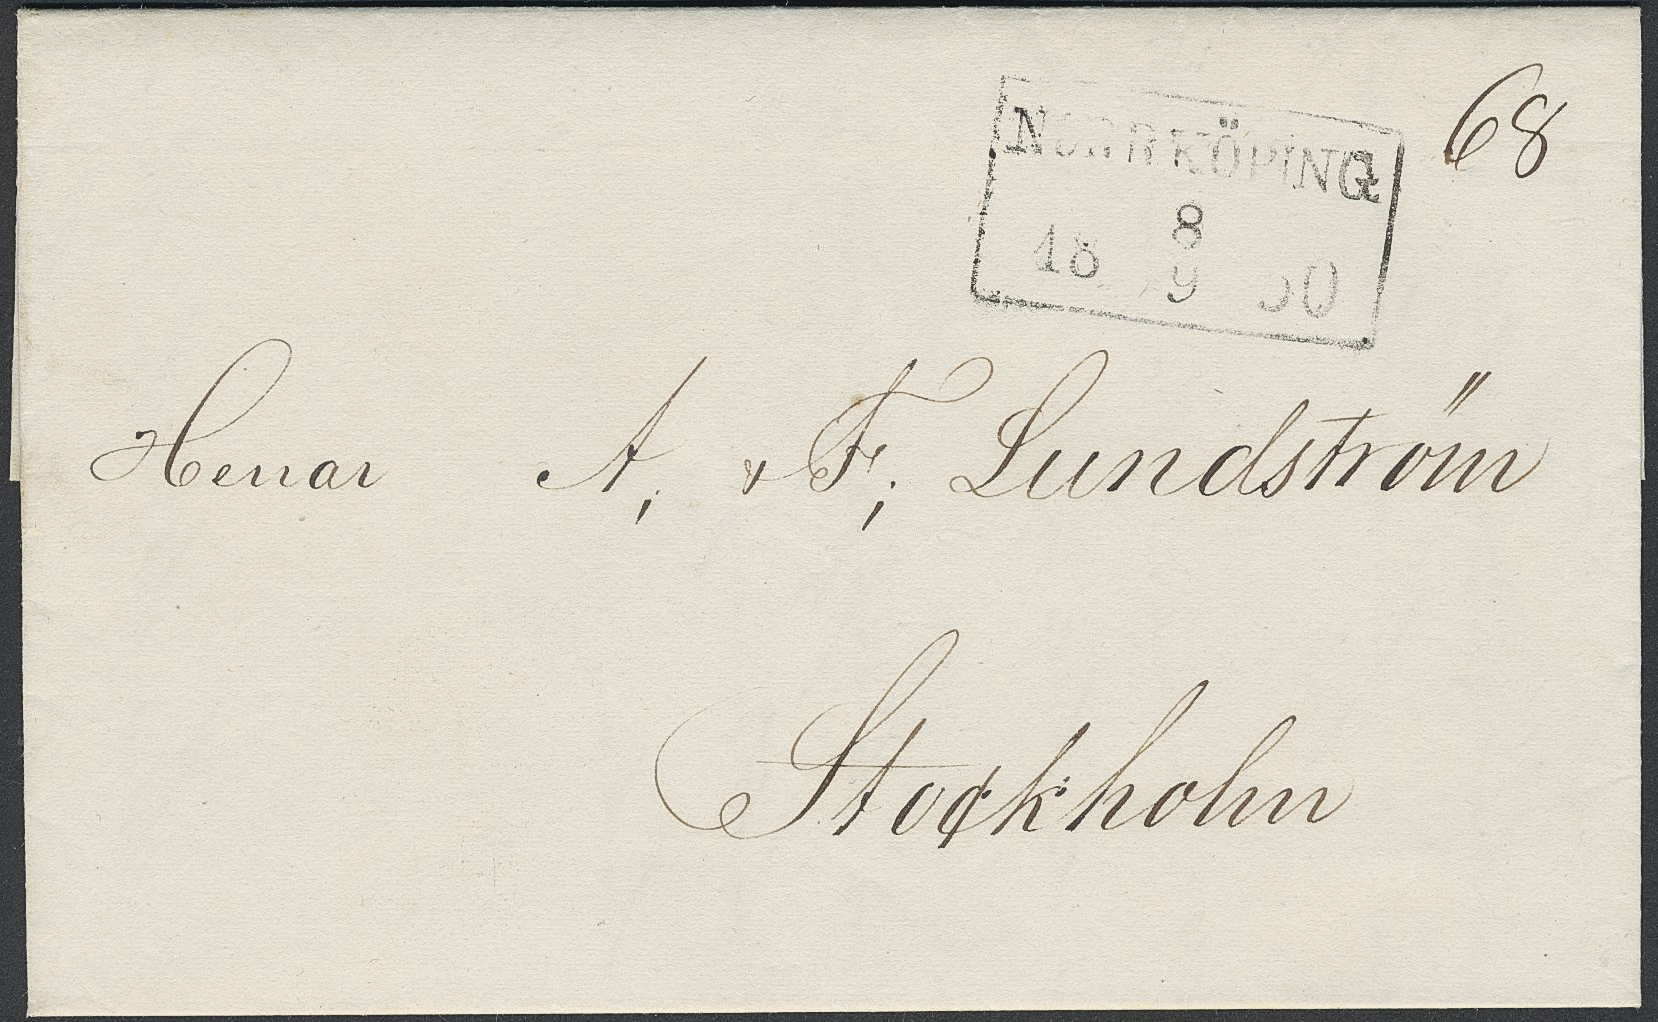 68
NORRKÖPING
8
18 9 50
Herrar A, & F, Lundström
Stockholm